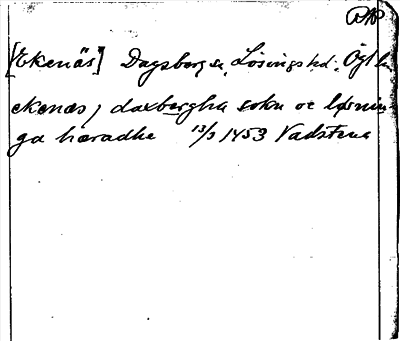 [Ekenäs] Dagsberg sn, Lösings hd. Ögl
ekenæs, daxbærgha sokn oc løsnin-
ga hæradhe 13/3 1453 Vadstena